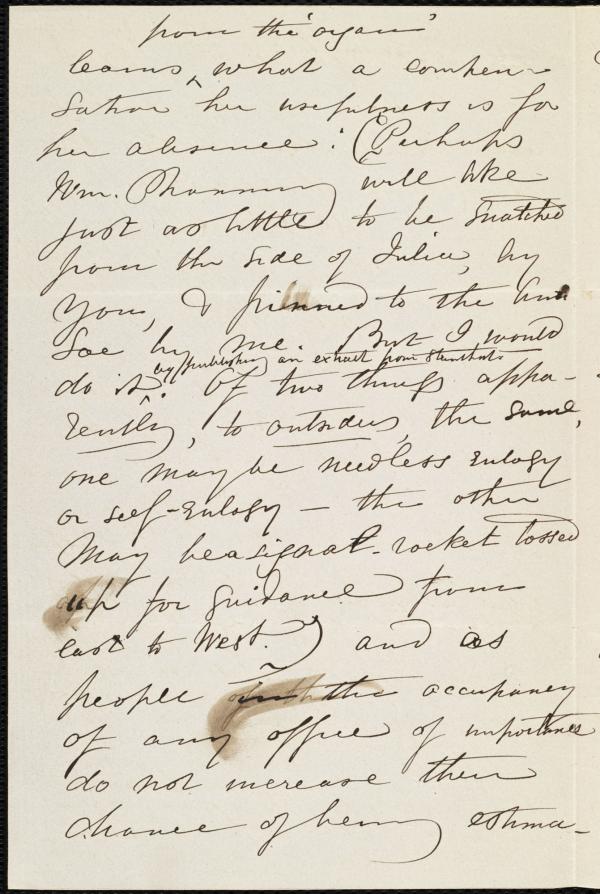 from the 'organ'
learns, ^ what a compen-
sation her usefulness is for
her absence: (Perhaps
Wm. Channing will like
just as little to be snatched
from the side of Julia, by
you, & pinned to the
by me. But I would
by publishing an extract from
do it ^. Of two things appa-
rently, to outsiders, the same,
one may be needless eulogy
or self-eulogy — the other
may be a signal-rocket tossed
up for guidance from
east to West.) and as
people in the occupancy
of any office of importance
do not increase their
chance of being estima-